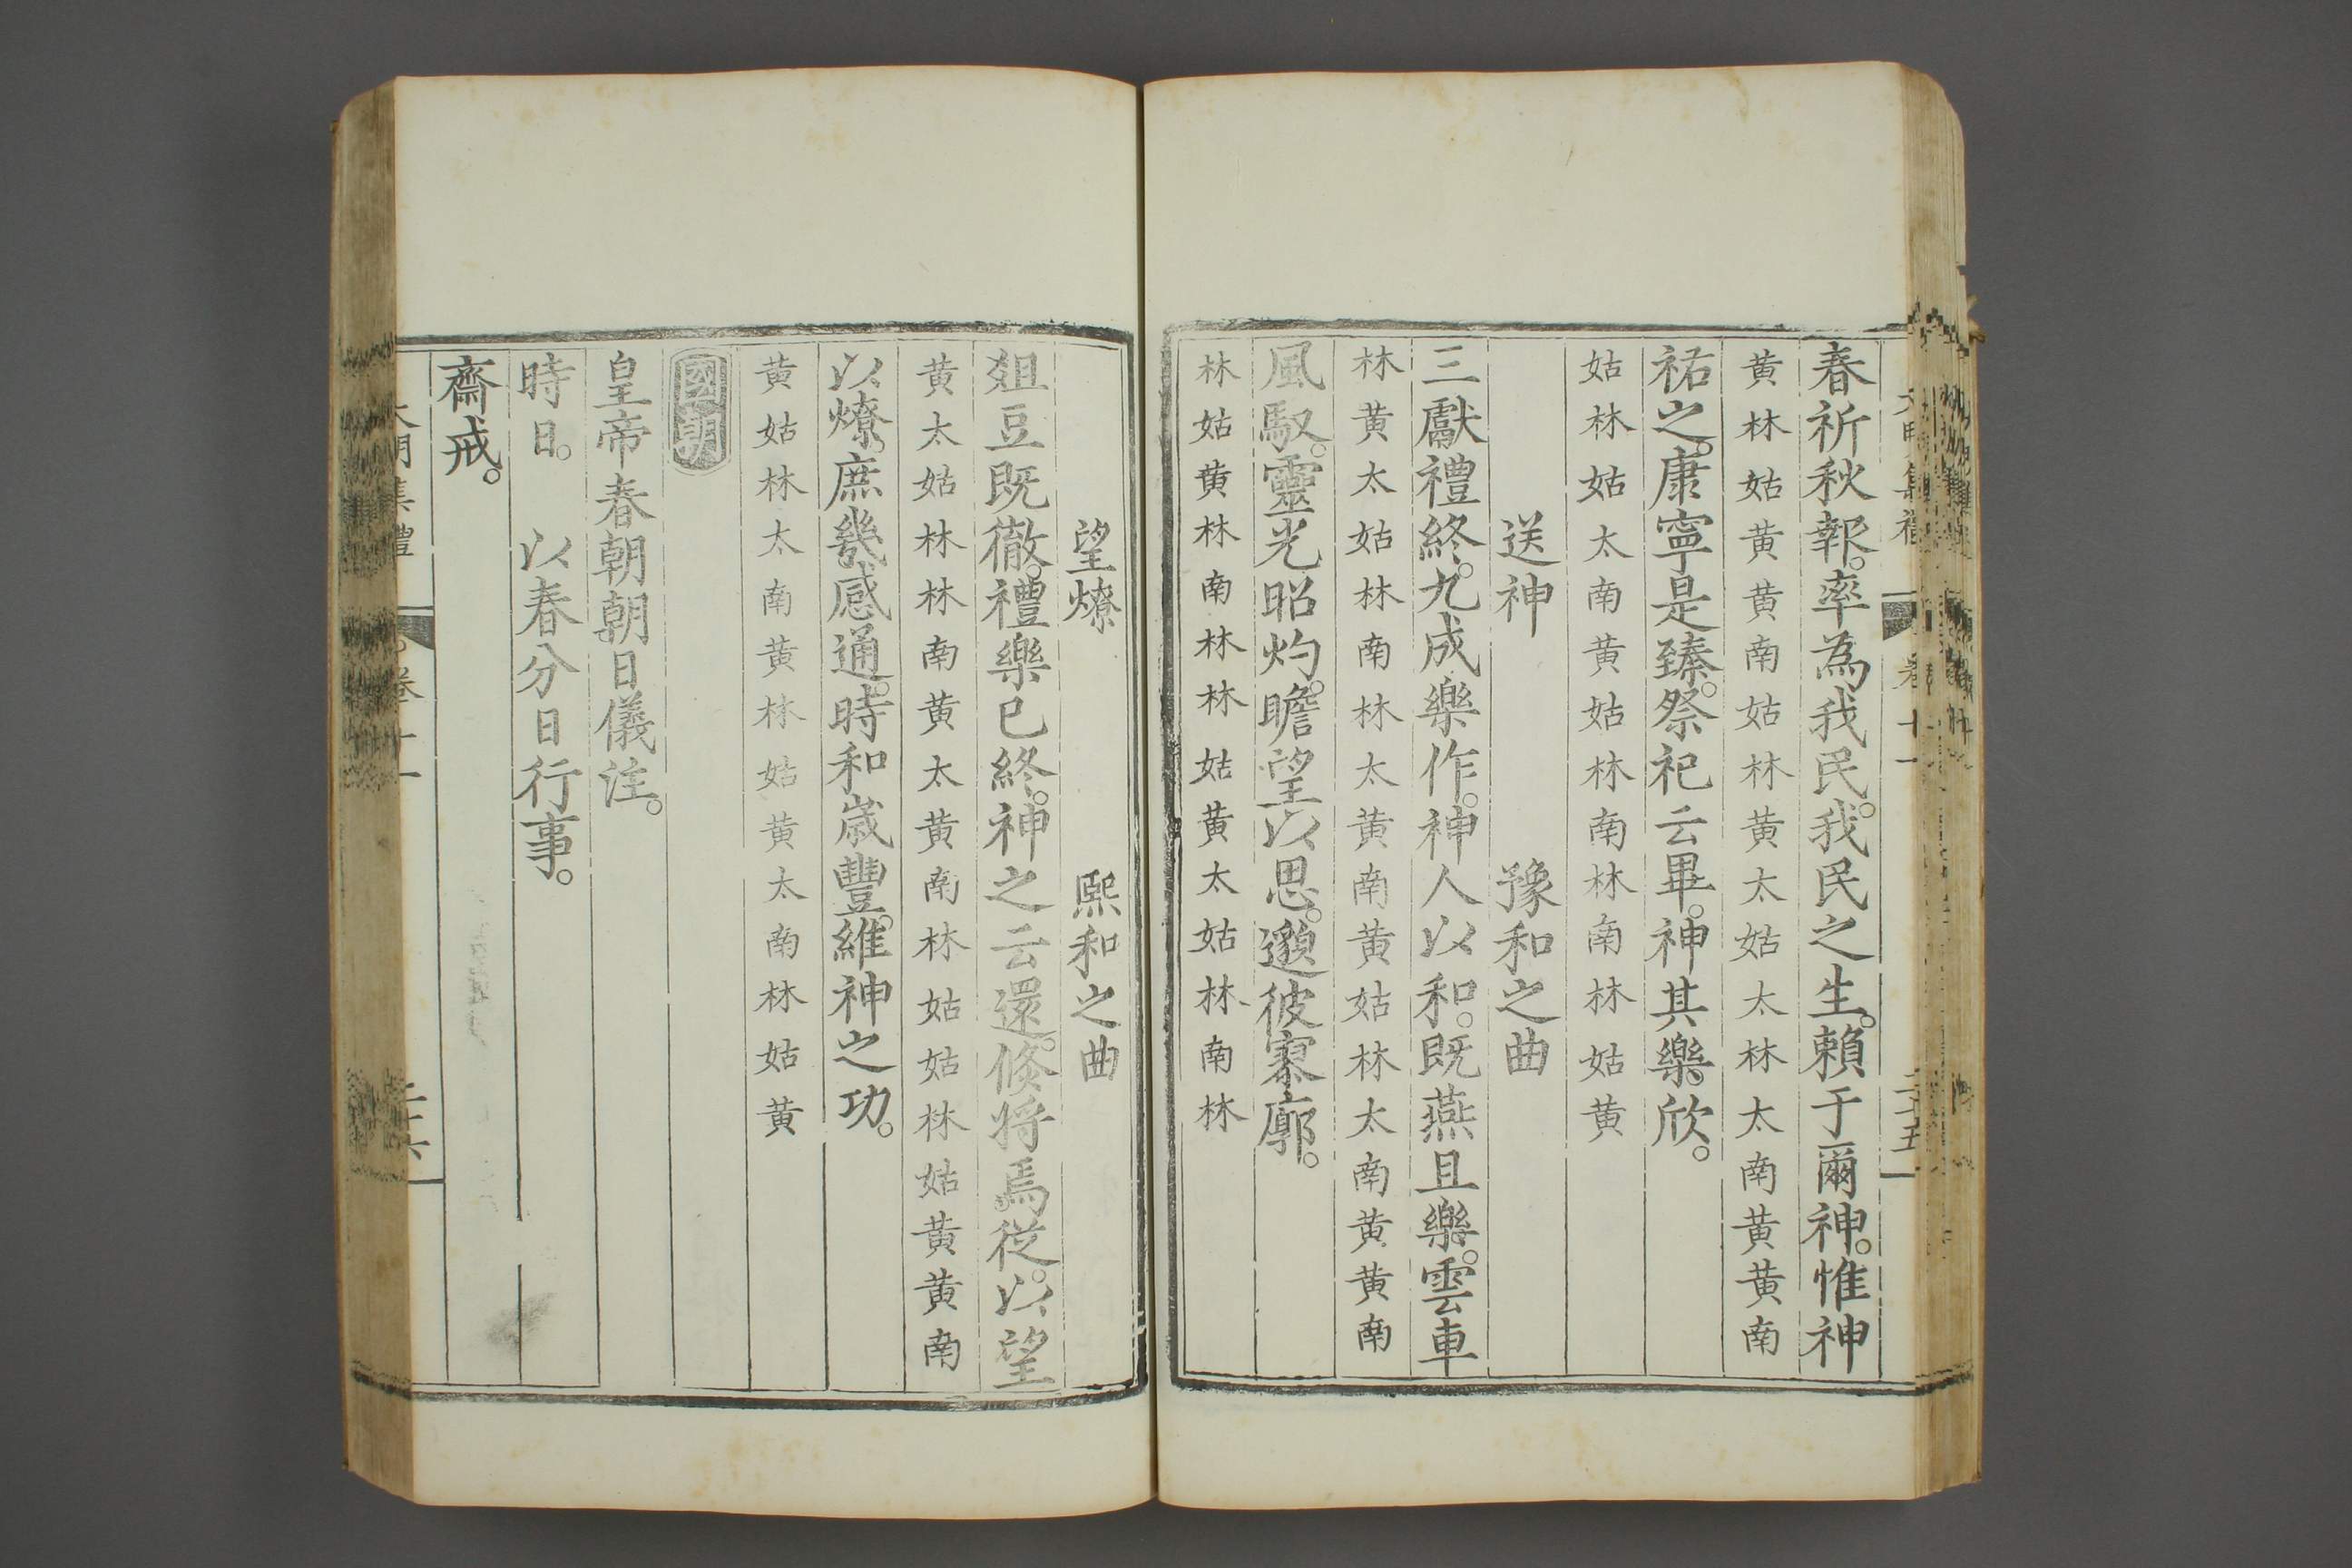 春祈秋報。率為我民。我民之生。賴于爾神。惟神
黄林姑黄黄南姑林黄太姑太林太南黄黄南
祐之。康寧是臻。祭祀云畢。神其樂欣。
姑林姑太南黄姑林南林南林姑黄
送神　豫和之曲
三獻禮終。九成樂作。神人以和。既燕且樂。雲車
林黄太姑林南林太黄南黄姑林太南黄黄南
風馭。靈光昭灼。瞻望以思。邈彼寥廓。
林姑黄林南林林姑黄太姑林南林
望燎　熙和之曲
俎豆既徹。禮樂已終。神之云還。倏將焉從。以望
黄太姑林林南黄太黄南林姑姑林姑黄黄南
以燎。庶幾感通。時和嵗豐。維神之功。
黄姑林太南黄林姑黄太南林姑黄
國朝
皇帝春朝朝日儀注。
時日。　以春分日行事。
齋戒。
大明集禮　卷十一　二十六